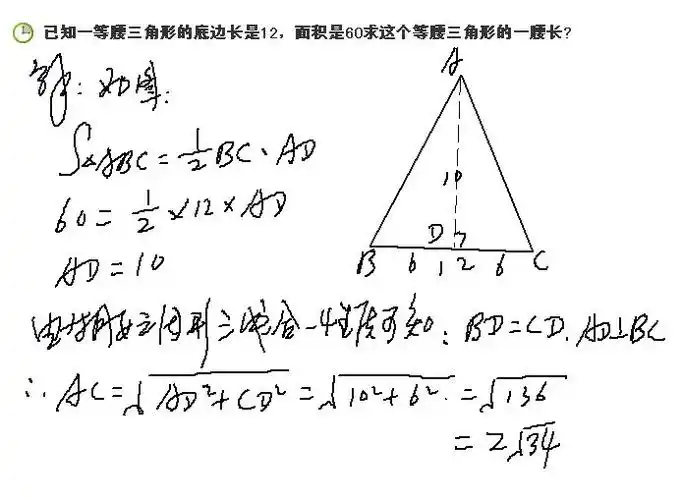 已知一等腰三角形的底边长是12，面积是60求这个等腰三角形的一腰长?
解：如图：
S△ABC = 1/2 BC · AD
60 = 1/2 × 12 × AD
AD = 10
由等腰三角形三线合一性质可知：BD = CD. AD⊥BC
∴ AC = √(AD²+CD²) = √(10²+6²) = √136
= 2√34
A
10
D
B 6 12 6 C